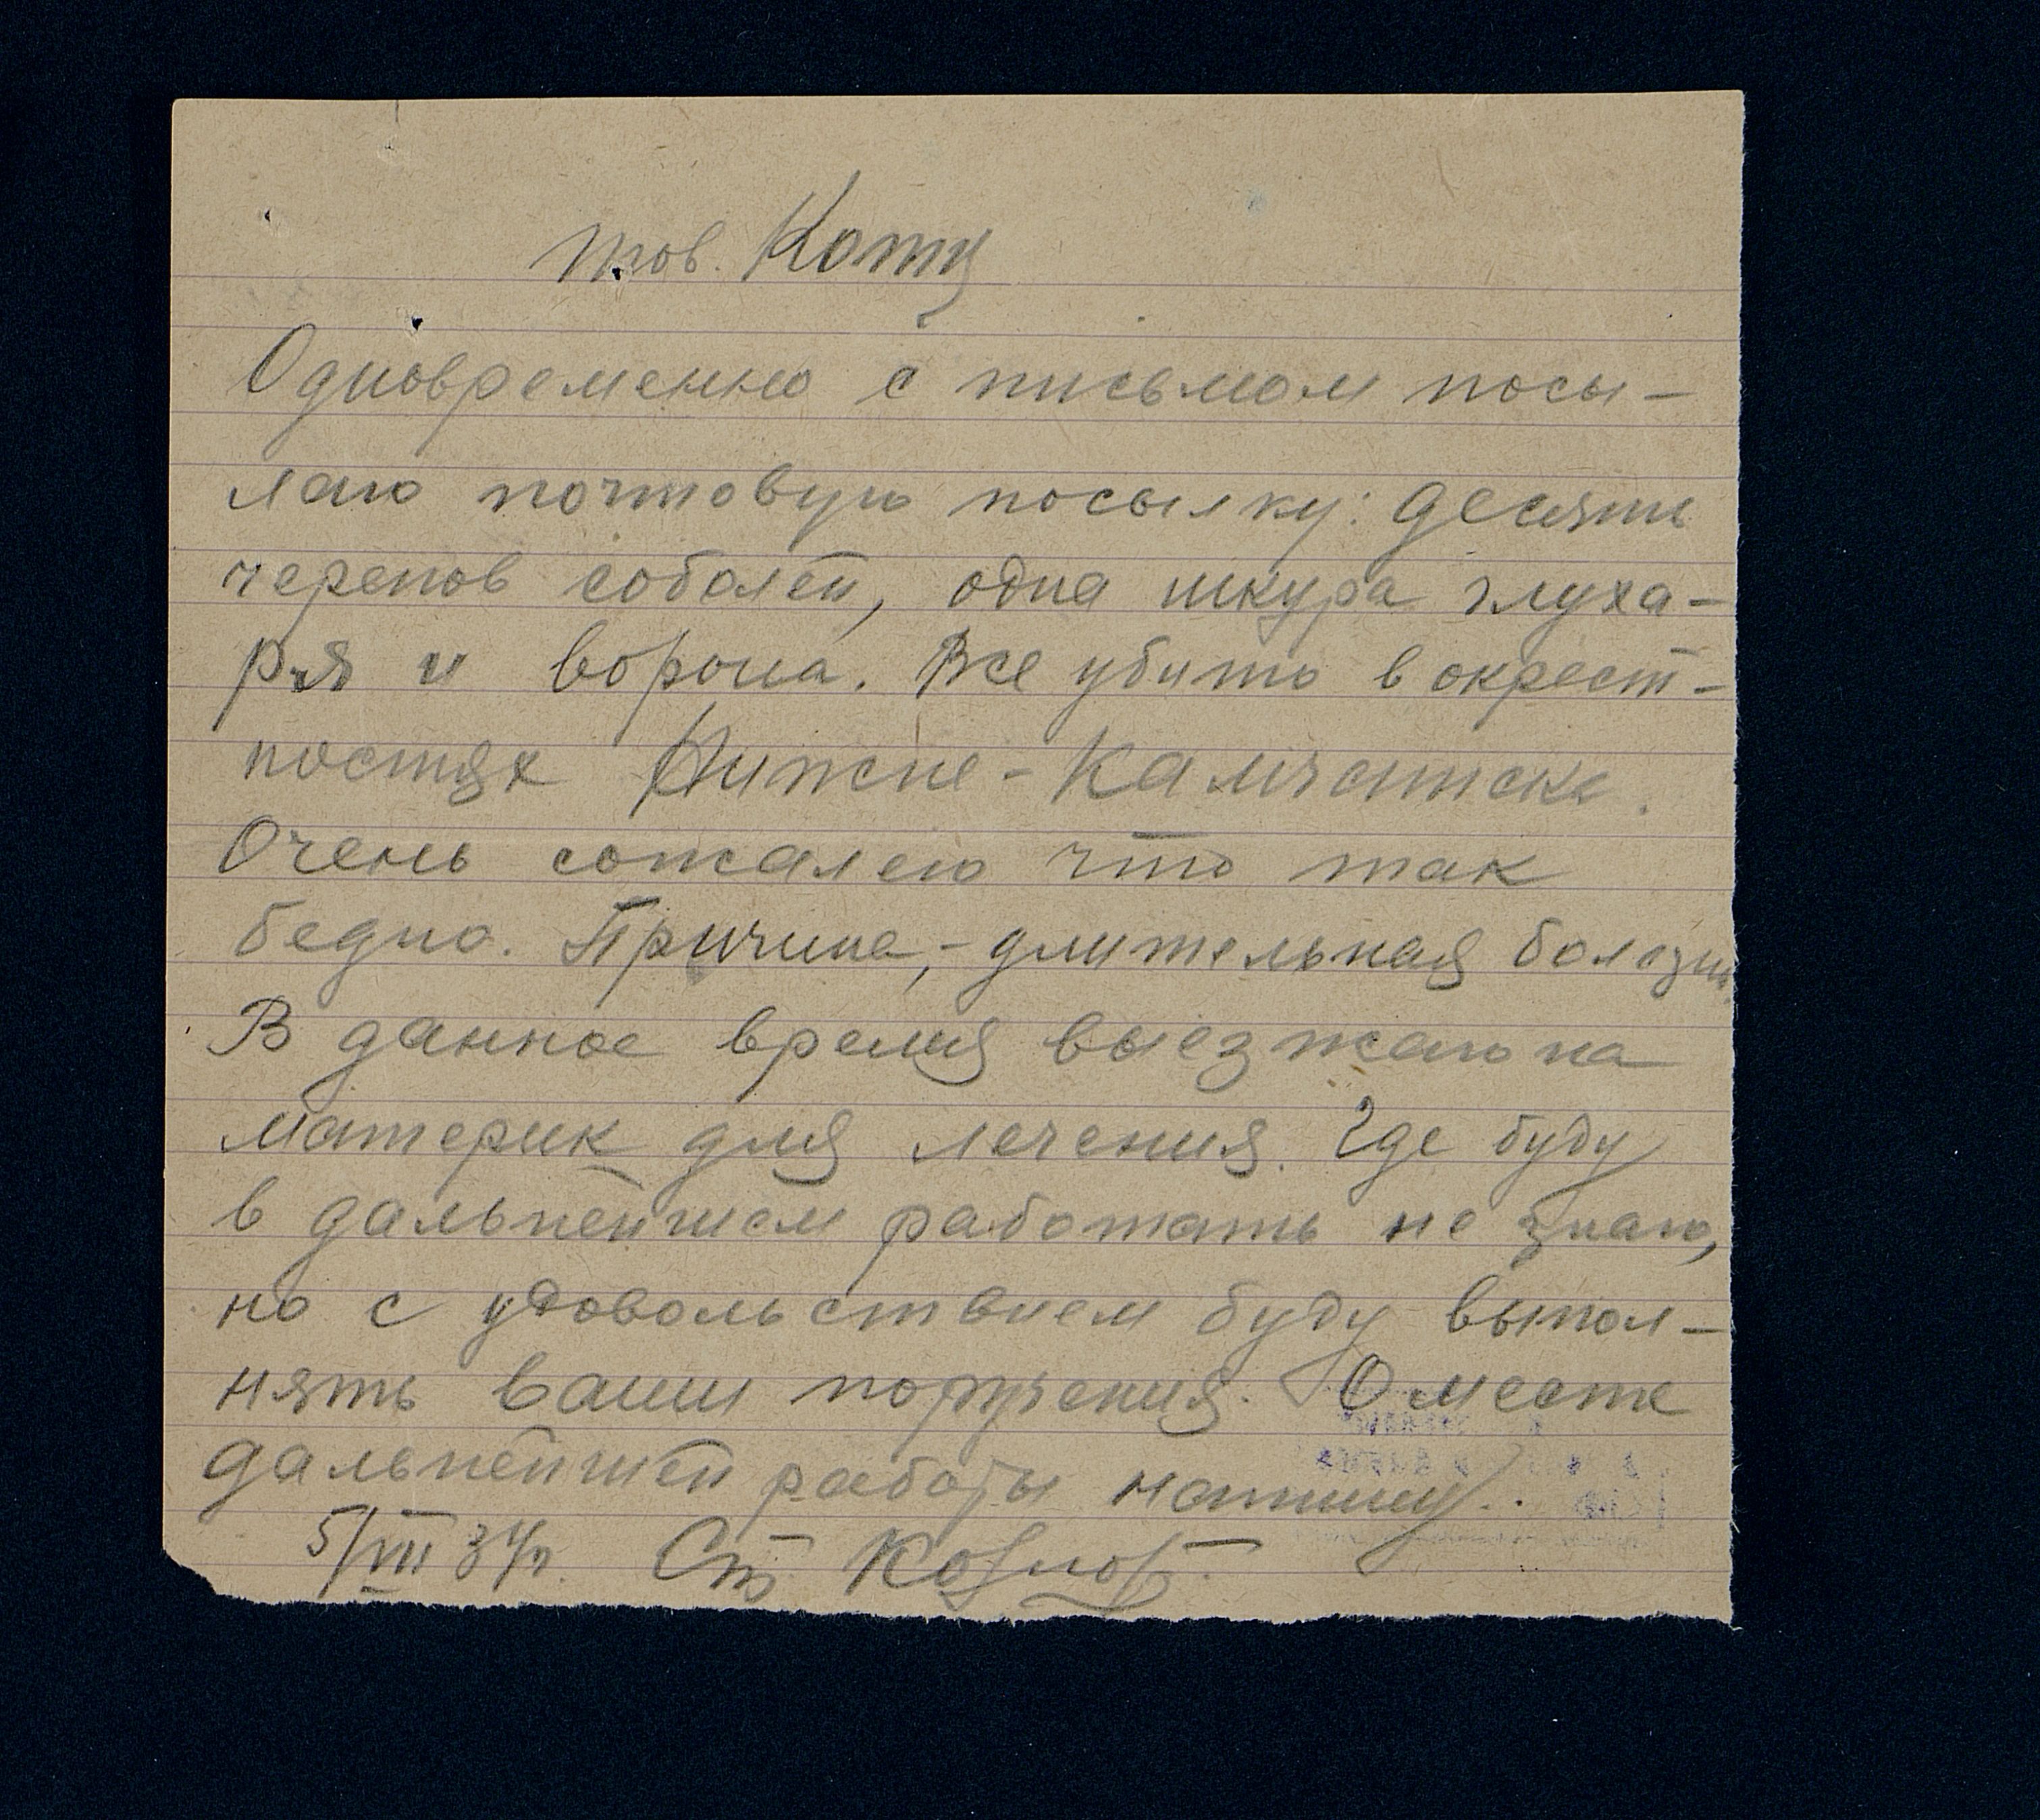 тов. Котц
Одновременно с письмом посы-
лаю почтовую посылку: десять
черепов соболей, одна шкура глуха-
ря и ворона. Все убито в окрест-
ностях Нижне-Камчатска.
Очень сожалею что так
бедно. Причина,- длительная болезнь
В данное время выезжаю на
материк для лечения. Где буду
в дальнейшем работать не знаю,
но с удовольствием буду выпол-
нять ваши поручения. О месте
дальнейшей работы напишу.
5/VIII 34 г. Ст Козлов.